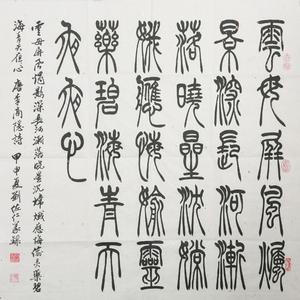 雲母屏風燭
影深長河漸
落曉星沉嫦
娥應悔偷靈
藥碧海青天
夜夜心
雲母屏風燭影深長河漸落曉星沉嫦娥應悔偷靈藥碧
海青天夜夜心 唐李商隱詩 甲申夏劉佐仁篆